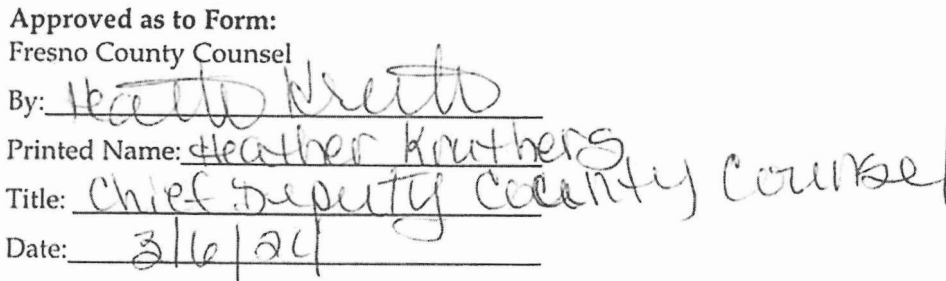 Approved as to Form:
Fresno County Counsel
By:
Printed Name: Heather Kruthers
Title: Chief Deputy County Counsel
Date: 3/6/24